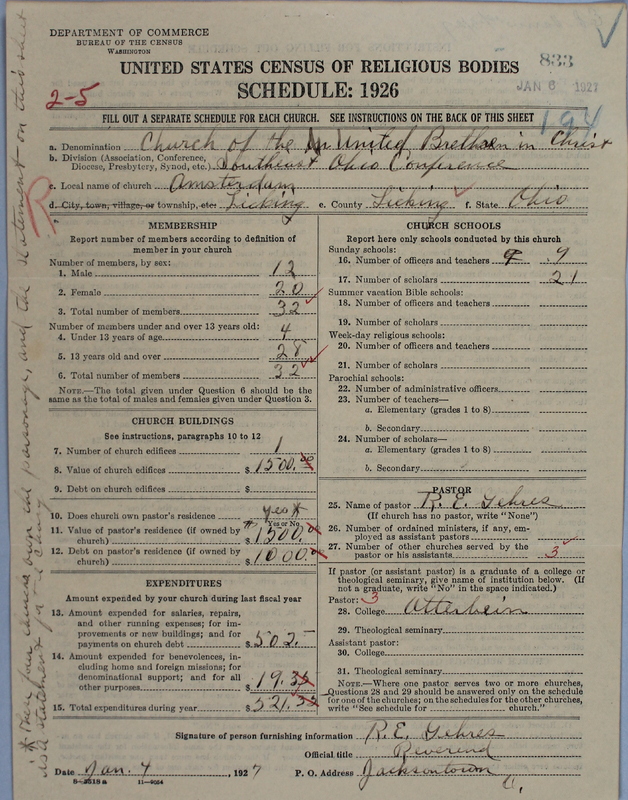 DEPARTMENT OF COMMERCE
BUREAU OF THE CENSUS
WASHINGTON
UNITED STATES CENSUS OF RELIGIOUS BODIES
SCHEDULE: 1926
833
JAN 6 1927
2-5
194
FILL OUT A SEPARATE SCHEDULE FOR EACH CHURCH. SEE INSTRUCTIONS ON THE BACK OF THIS SHEET
a. Denomination Church of the United Brethren in Christ
b. Division (Association, Conference, Diocese, Presbytery, Synod, etc.) Southeast Ohio Conference
c. Local name of church Amsterdam
d. City, town, village, or township, etc. Licking e. County Licking f. State Ohio
MEMBERSHIP
Report number of members according to definition of member in your church
Number of members, by sex:
1. Male 12
2. Female 20
3. Total number of members 32
Number of members under and over 13 years old:
4. Under 13 years of age 4
5. 13 years old and over 28
6. Total number of members 32
NOTE.—The total given under Question 6 should be the same as the total of males and females given under Question 3.
CHURCH BUILDINGS
See instructions, paragraphs 10 to 12
7. Number of church edifices 1
8. Value of church edifices $1500.00
9. Debt on church edifices $
10. Does church own pastor's residence? yes*
Yes or No
11. Value of pastor's residence (if owned by church) $1500.00
12. Debt on pastor's residence (if owned by church) $1000.00
EXPENDITURES
Amount expended by your church during last fiscal year
13. Amount expended for salaries, repairs, and other running expenses; for improvements or new buildings; and for payments on church debt $502.—
14. Amount expended for benevolences, including home and foreign missions; for denominational support; and for all other purposes $19.35
15. Total expenditures during year $521.35
CHURCH SCHOOLS
Report here only schools conducted by this church
Sunday schools:
16. Number of officers and teachers 9
17. Number of scholars 21
Summer vacation Bible schools:
18. Number of officers and teachers
19. Number of scholars
Week-day religious schools:
20. Number of officers and teachers
21. Number of scholars
Parochial schools:
22. Number of administrative officers
23. Number of teachers—
a. Elementary (grades 1 to 8)
b. Secondary
24. Number of scholars—
a. Elementary (grades 1 to 8)
b. Secondary
PASTOR
25. Name of pastor R. E. Gehres
(If church has no pastor, write "None")
26. Number of ordained ministers, if any, employed as assistant pastors
27. Number of other churches served by the pastor or his assistants 3
If pastor (or assistant pastor) is a graduate of a college or theological seminary, give name of institution below. (If not a graduate, write "No" in the space indicated.)
Pastor: 3
28. College Otterbein
29. Theological seminary
Assistant pastor:
30. College
31. Theological seminary
NOTE.—Where one pastor serves two or more churches, Questions 28 and 29 should be answered only on the schedule for one of the churches; on the schedules for the other churches, write "See schedule for church."
Signature of person furnishing information R. E. Gehres
Official title Reverend
Date Jan. 4, 1927 P. O. Address Jacksontown O.
11—9054
parsonage, and the statement on this sheet